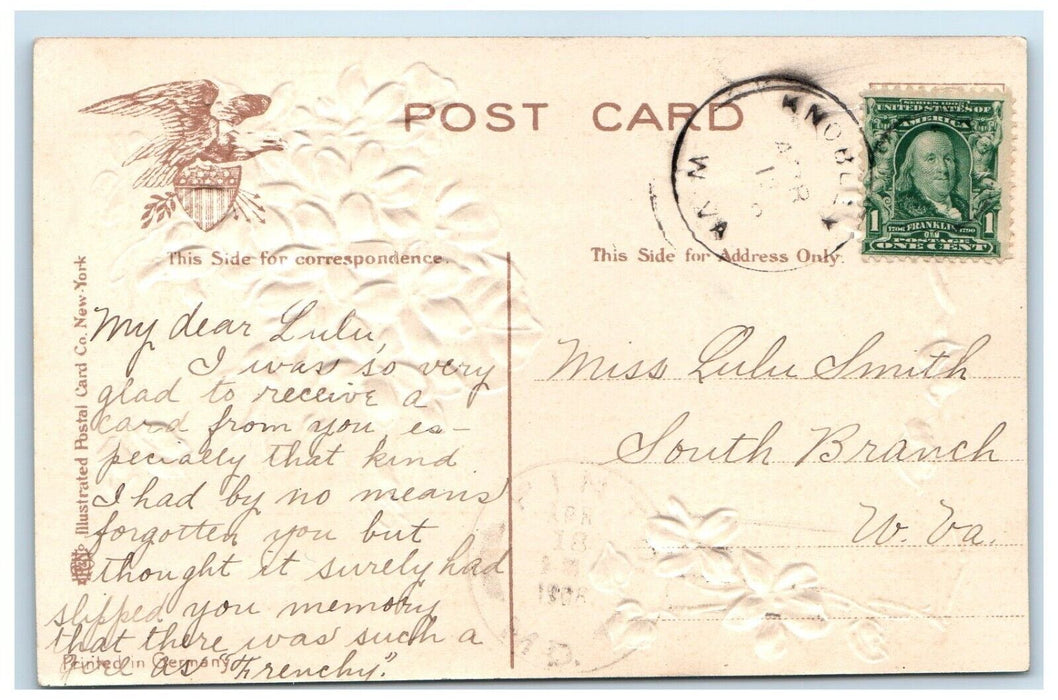 POST CARD
KNOBLEY
APR
18
W. VA.
SERIES 1902
UNITED STATES OF
AMERICA
1 1
1706 FRANKLIN 1790
POSTAGE
ONE CENT
This Side for correspondence.
This Side for Address Only.
Illustrated Postal Card Co. New-York
My dear Lulu,
I was so very
glad to receive a
card from you es-
pecially that kind.
I had by no means
forgotten you but
thought it surely had
slipped you memory
that there was such a
one as "Frenchy".
Printed in Germany
Miss Lulu Smith
South Branch
W. Va.
APR
18
1908
MD.